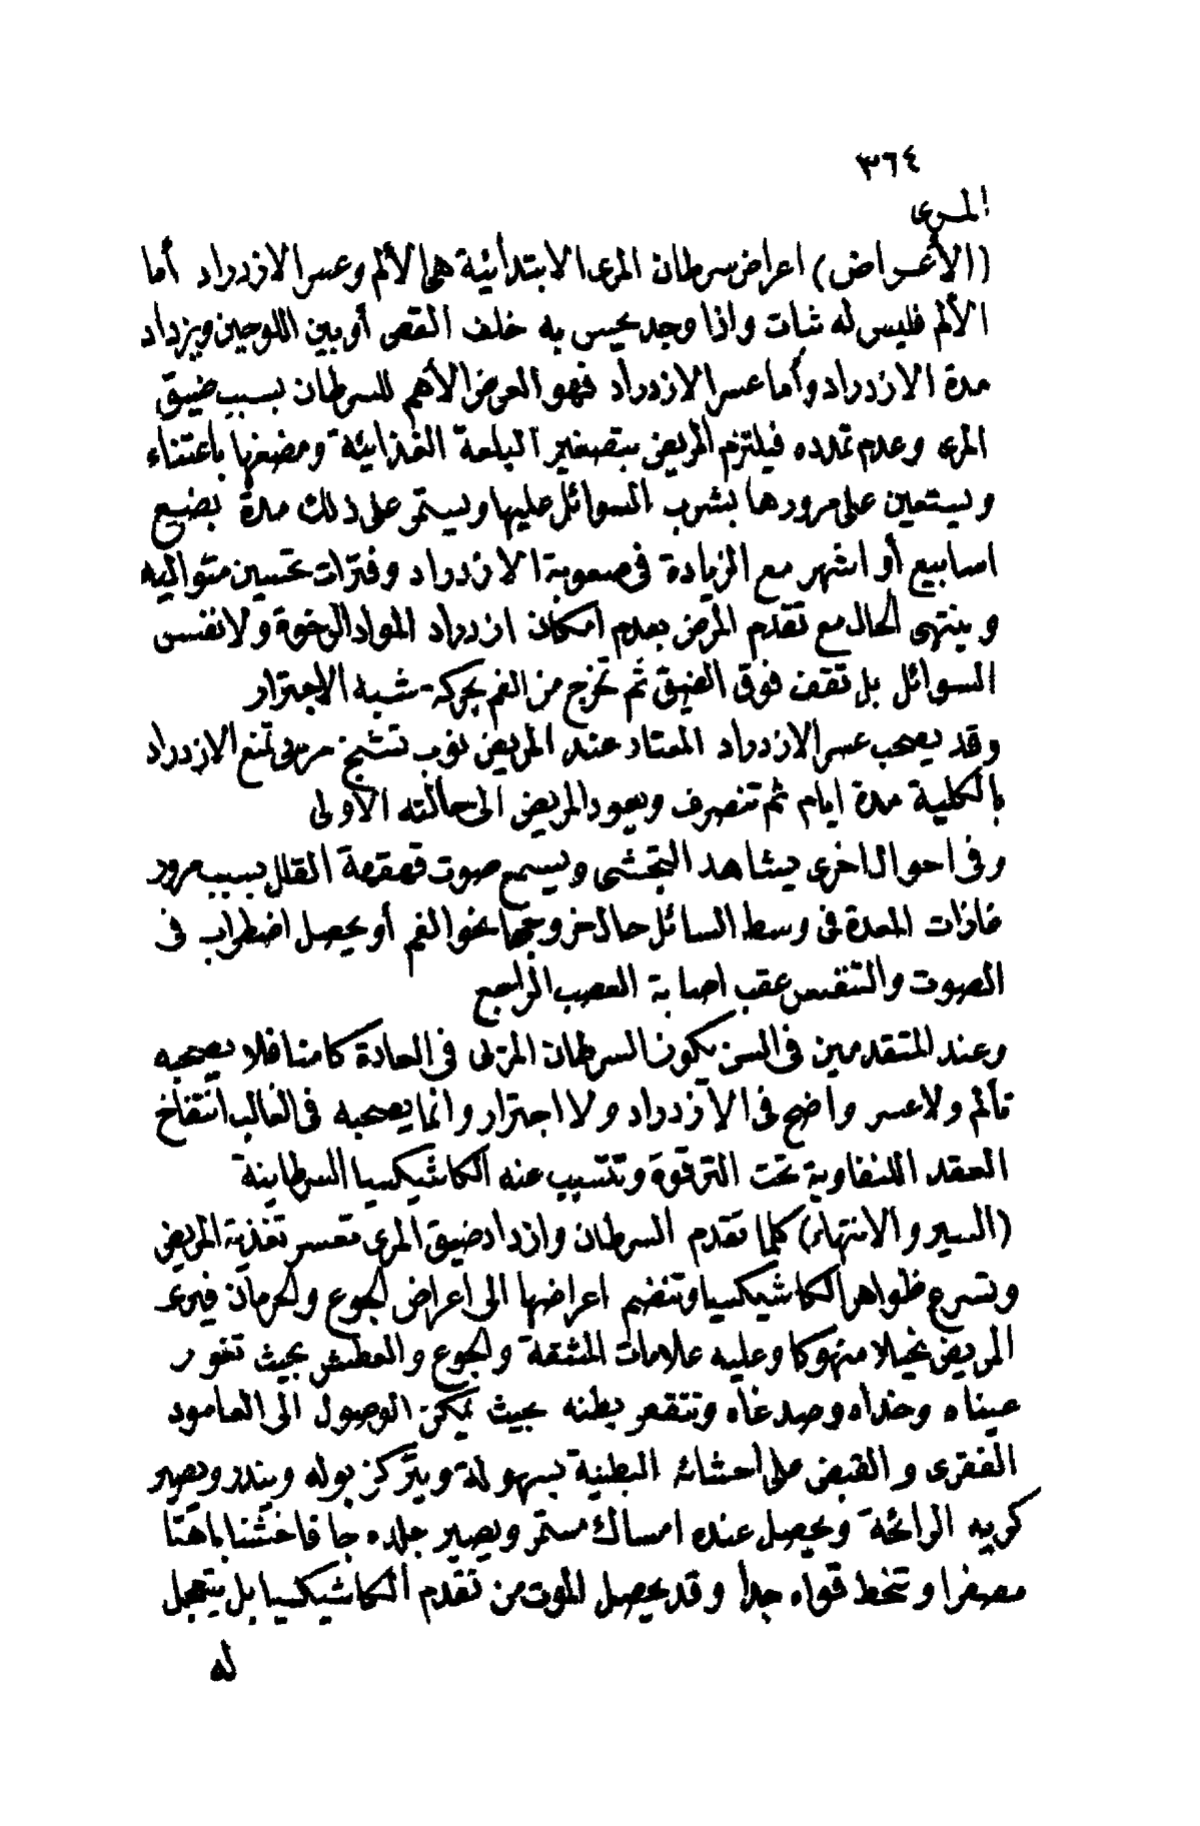 ٣٦٤
المرى
(الأعراض) اعراض سرطان المرى الابتدأئية هى الألم وعسر الازدراد أما
الألم فليس له ثبات واذا وجد يحس به خلف القص أو بين اللوحين ويزداد
مدة الازدراد وأما عسر الازدراد فهو العرض الأهم للسرطان بسبب ضيق
المرى وعدم تمدده فيلتزم المريض بتصغير البلعة الغذائية ومضغها باعتناء
ويستعين على مرورها بشرب السوائل عليها ويستمر على ذلك مدة بضع
اسابيع أو اشهر مع الزيادة فى صعوبة الازدراد وفترات تحسين متواليه
وينتهى الحال مع تقدم المرض بعدم امكان ازدراد المواد الرخوة ولا نفس
السوائل بل تقف فوق الضيق ثم تخرج من الفم بحركة شبه الاجترار
وقد يصحب عسر الازدراد المعتاد عند المريض نوب تشنج مريى تمنع الازدراد
بالكلية مدة ايام ثم تنصرف ويعود المريض الى حالته الأولى
وفى احوال اخرى يشاهد التجشى ويسمع صوت قعقعة القلل بسبب مرور
غازات المعدة فى وسط السائل حال خروجها نحو الفم أو يحصل اضطراب فى
الصوت والتنفس عقب اصابة العصب الراجع
وعند المتقدمين فى السن يكون السرطان المرئى فى العادة كامنا فلا يصحبه
تألم ولا عسر واضح فى الازدراد ولا اجترار وانما يصحبه فى الغالب انتفاخ
العقد اللنفاوية تحت الترقوة وتتسبب عنه الكاشيكسيا السرطاينة
(السير والانتهاء) كلما تقدم السرطان وازداد ضيق المرى تعسر تغذية المريض
وتسرع ظواهر الكاشيكسيا وتنضم اعراضها الى اعراض الجوع والحرمان فيرى
المريض نحيلا منهوكا وعليه علامات المشقة والجوع والعطش بحيث تغور
عيناه وخداه وصدغاه وتتقعر بطنه بحيث يمكن الوصول الى العامود
الفقرى والقبض على احشائه البطنية بسهولة ويتركز بوله ويندر ويصير
كريه الرائحة ويحصل عنده امساك مستمر ويصير جلده جافا خشنا باهتا
مصفرا وتنحط قواه جدا وقد يحصل الموت من تقدم الكاشيكسيا بل يتعجل
له